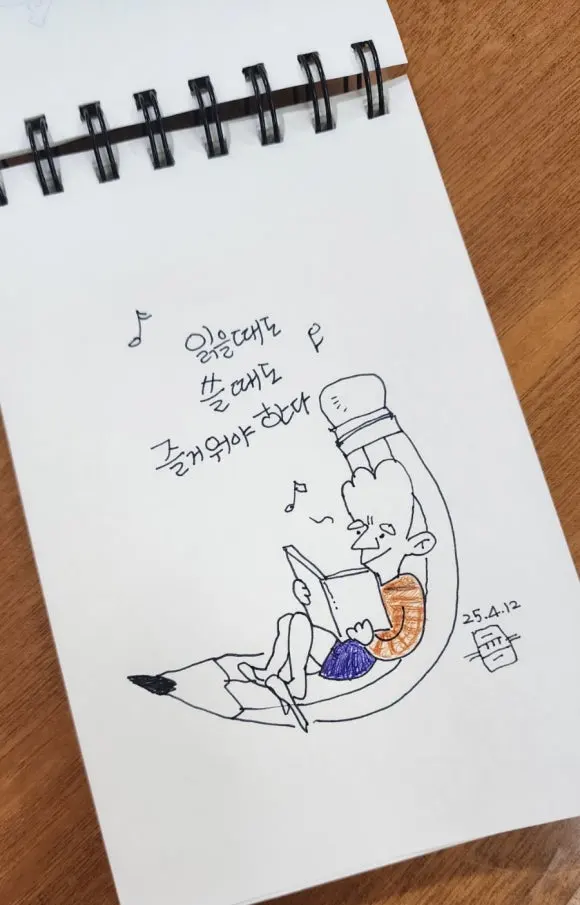 읽을때도
쓸때도
즐거워야 한다
25.4.12